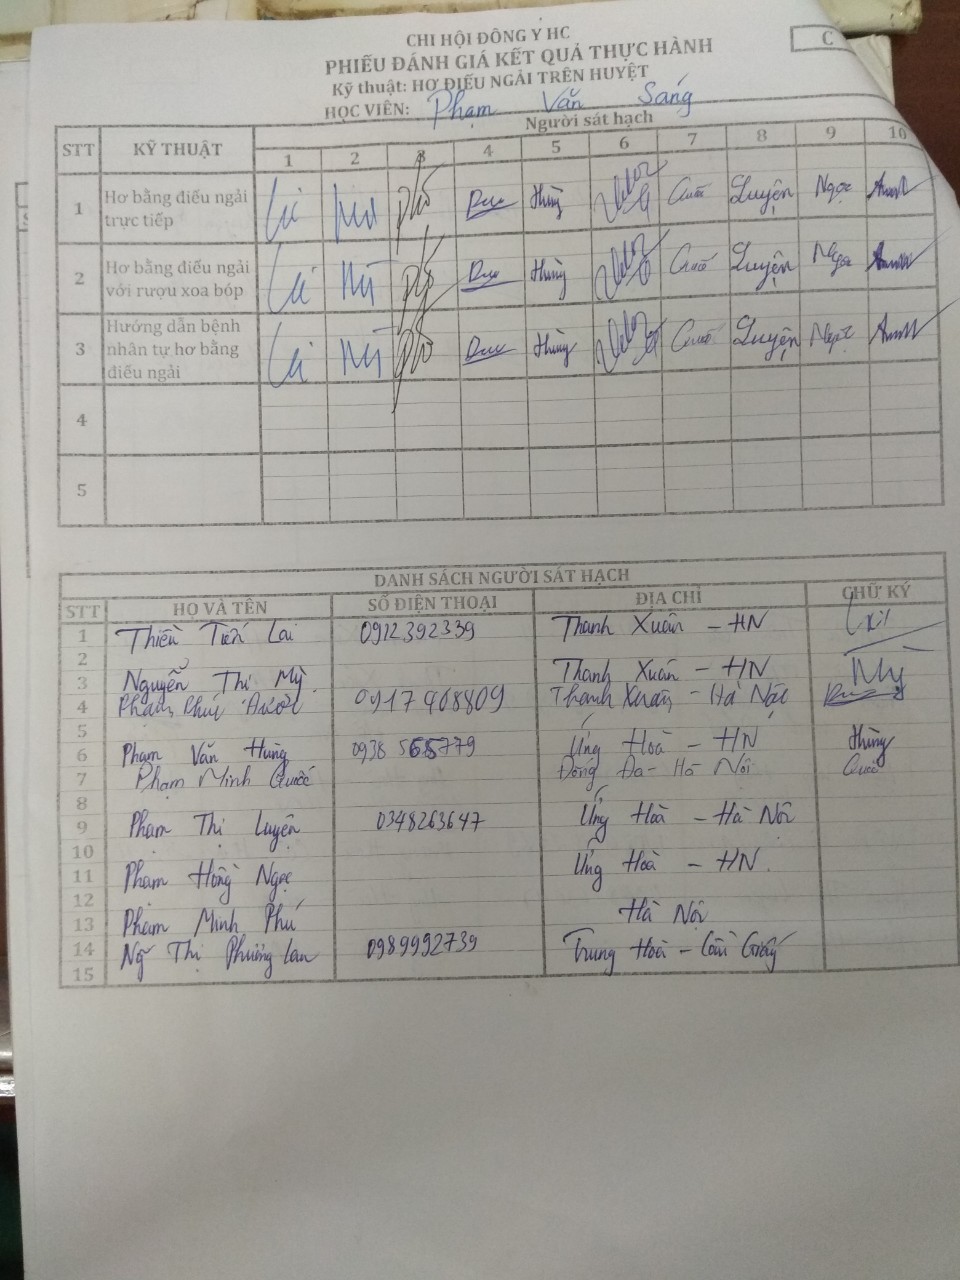 CHI HỘI ĐÔNG Y HC
C
PHIẾU ĐÁNH GIÁ KẾT QUẢ THỰC HÀNH
Kỹ thuật: HƠ ĐIẾU NGẢI TRÊN HUYỆT
HỌC VIÊN: Phạm Văn Sang
STT KỸ THUẬT Người sát hạch
1 2 3 4 5 6 7 8 9 10
1 Hơ bằng điếu ngải trực tiếp Hùng Luyện Ngọc
2 Hơ bằng điếu ngải với rượu xoa bóp Hùng Luyện Ngọc
3 Hướng dẫn bệnh nhân tự hơ bằng điếu ngải Hùng Luyện Ngọc
4
5
DANH SÁCH NGƯỜI SÁT HẠCH
STT HỌ VÀ TÊN SỐ ĐIỆN THOẠI ĐỊA CHỈ CHỮ KÝ
1 Tiến Lai 0912392339 Thanh Xuân - HN
2
3 Nguyễn Thị Mỹ Thanh Xuân - HN Mỹ
4 Phạm 0917968809 Thanh Xuân - Hà Nội
5
6 Phạm Văn Hùng Ứng Hoà - HN Hùng
7 Phạm Minh Quốc Đống Đa - Hà Nội Quốc
8
9 Phạm Thị Luyện 0348263647 Ứng Hoà - Hà Nội
10
11 Phạm Hồng Ngọc Ứng Hoà - HN
12
13 Phạm Minh Phú Hà Nội
14 Thị Phương Lan 0989992739 Trung Hoà - Cầu Giấy
15